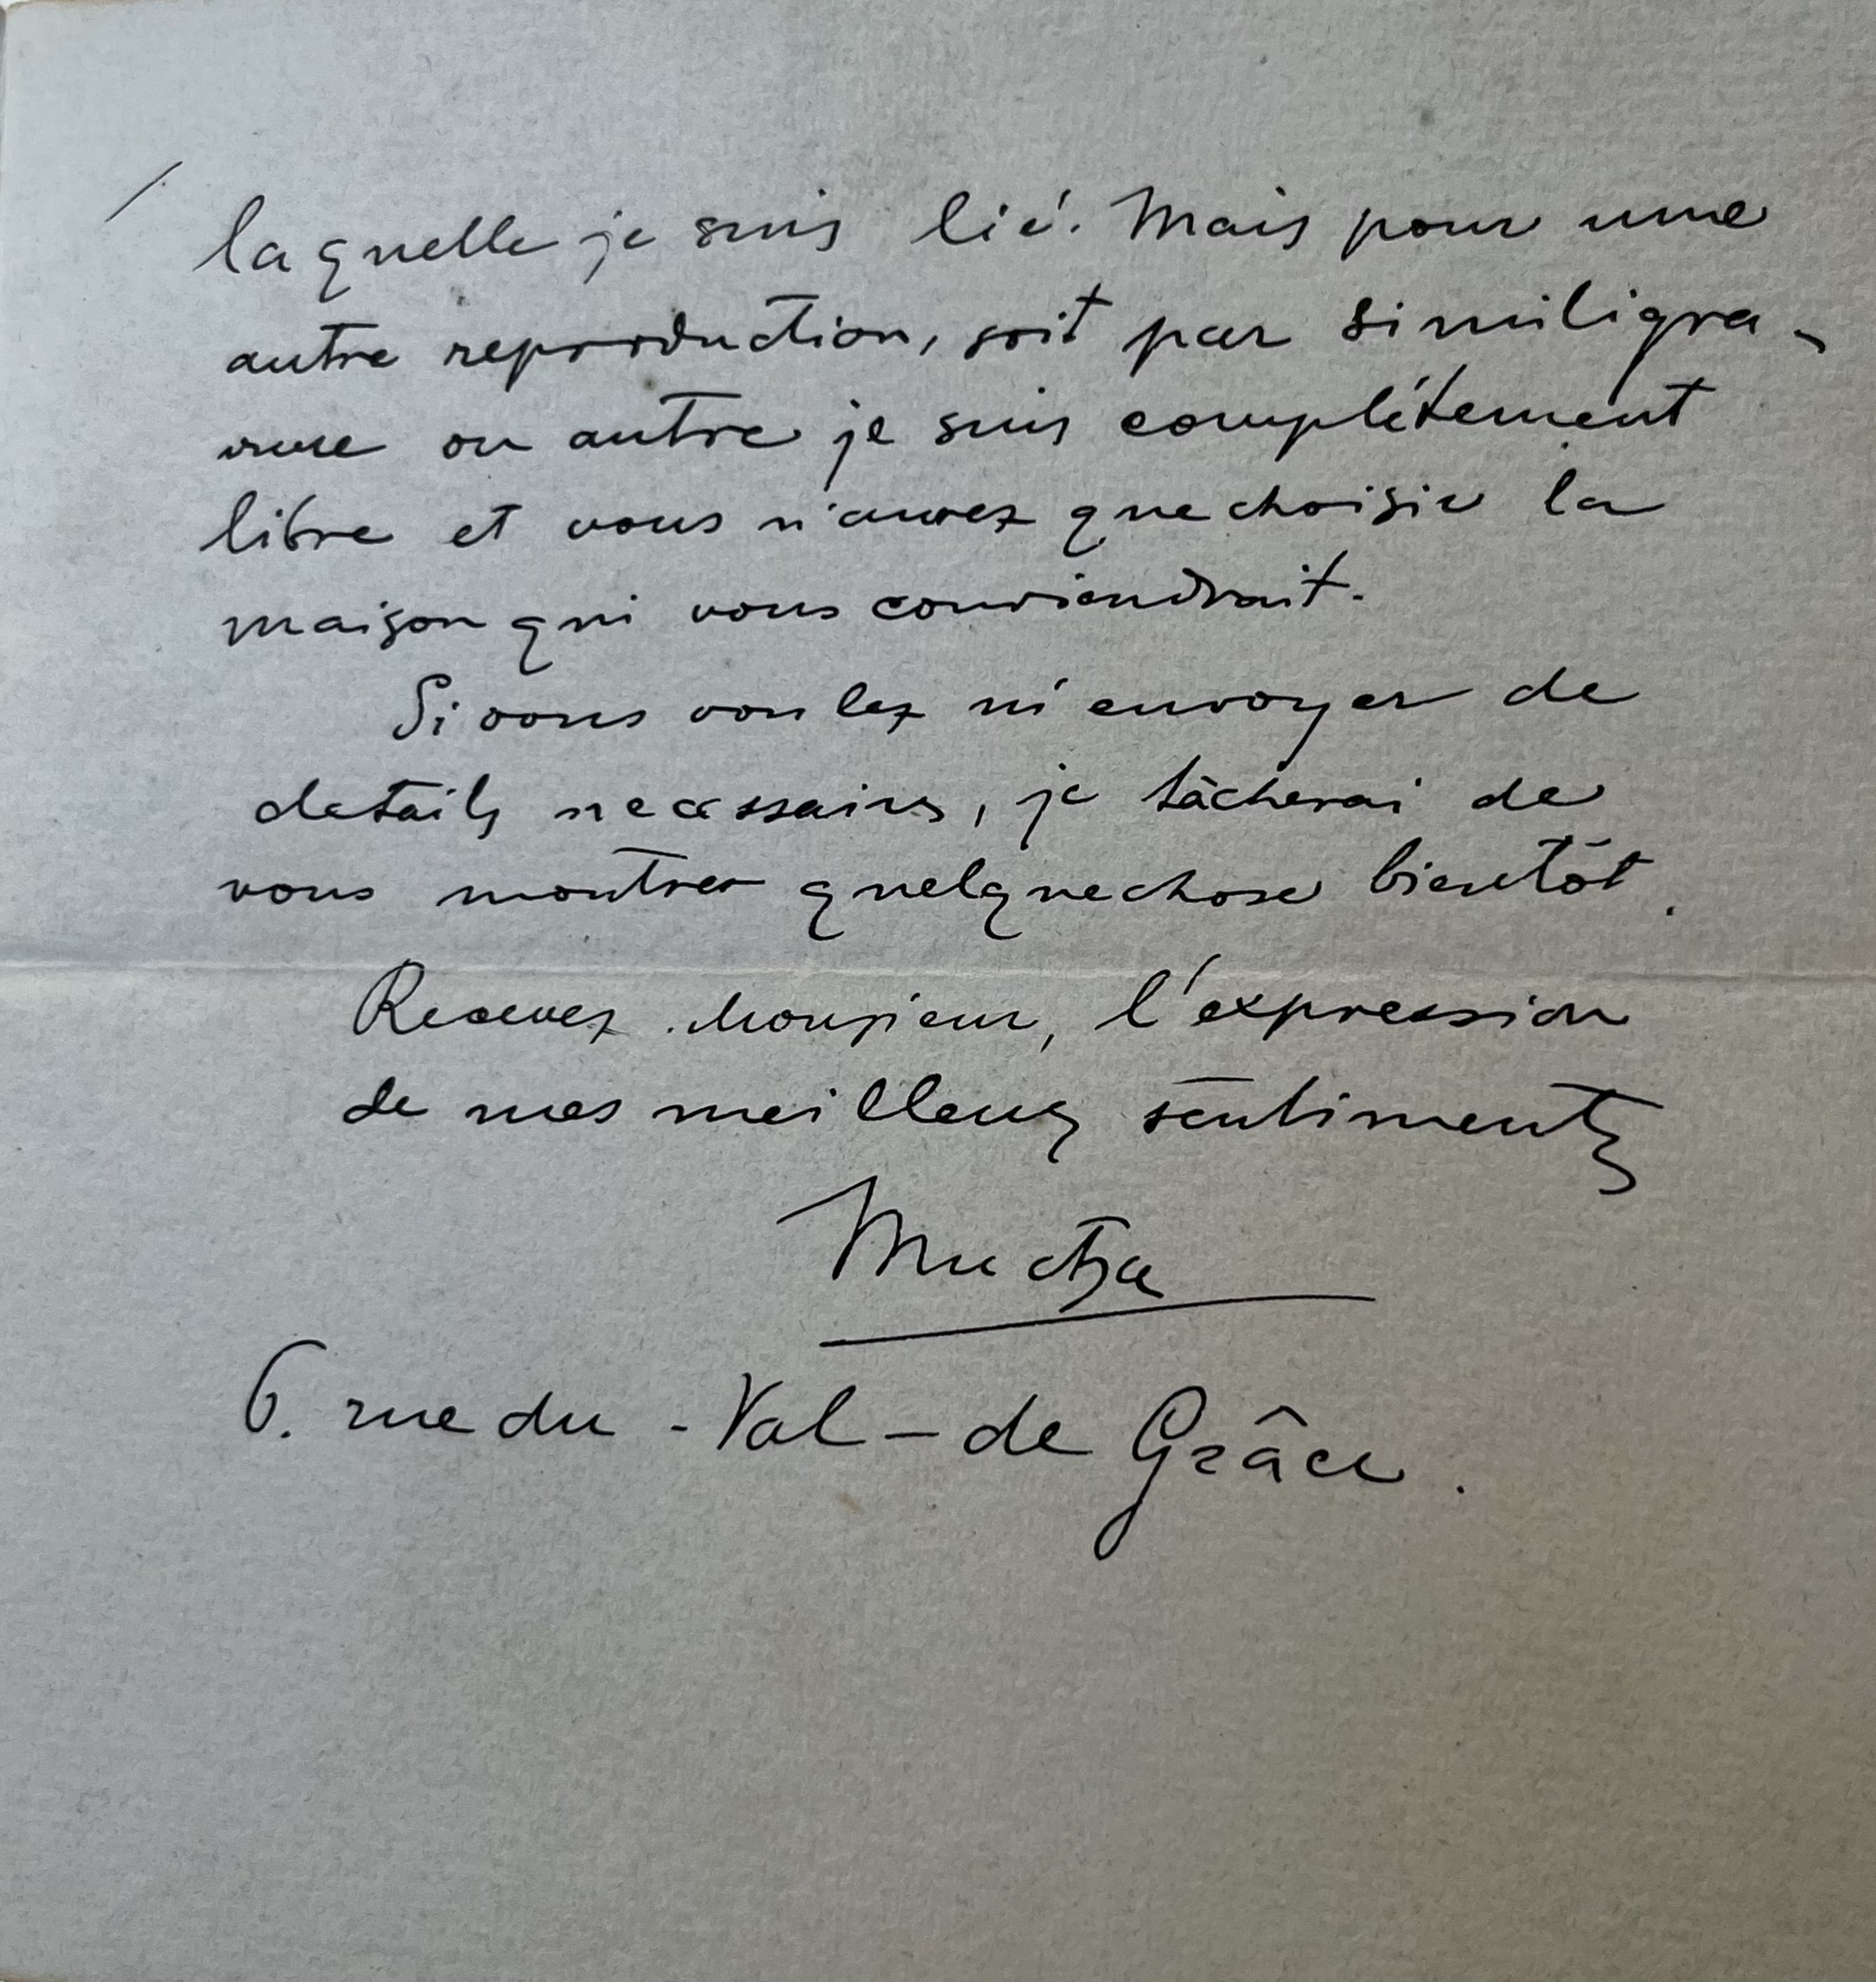 laquelle je suis lié. Mais pour une
autre reproduction, soit par similigra-
vure ou autre je suis complétement
libre et vous n'avez que choisir la
maison qui vous conviendrait.
Si vous voulez m'envoyer de
details necessaires, je tâcherai de
vous montrer quelque chose bientôt.
Recevez Monsieur, l'expression
de mes meilleurs sentiments
Mucha
6. rue du - Val - de Grâce.